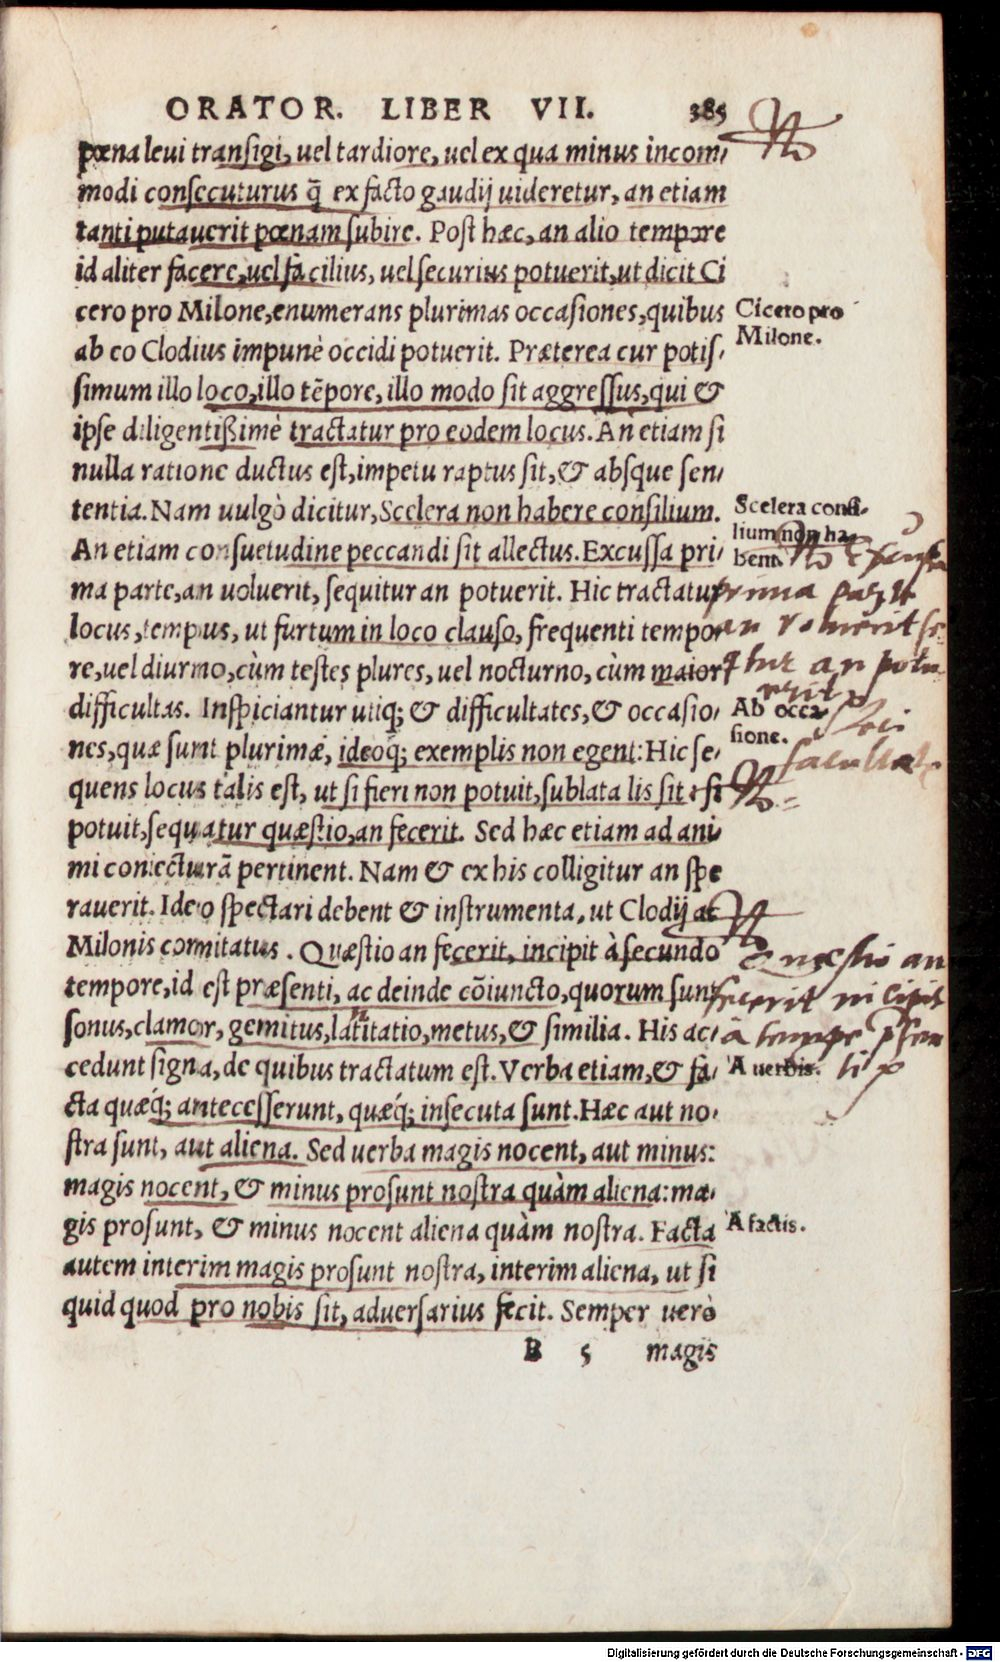 ORATOR. LIBER VII. 385
pœna leui transigi, uel tardiore, uel ex qua minus incom,
modi consecuturus q̃ ex facto gaudij uideretur, an etiam
tanti putauerit pœnam subire. Post hæc, an alio tempore
id aliter facere, uel facilius, uel securius potuerit, ut dicit Ci
cero pro Milone, enumerans plurimas occasiones, quibus
ab eo Clodius impunè occidi potuerit. Præterea cur potis,
simum illo loco, illo tẽpore, illo modo sit aggressus, qui &
ipse diligentißimè tractatur pro eodem locus. An etiam si
nulla ratione ductus est, impetu raptus sit, & absque sen,
tentia. Nam uulgò dicitur, Scelera non habere consilium.
An etiam consuetudine peccandi sit allectus. Excussa pri,
ma parte, an uoluerit, sequitur an potuerit. Hic tractatur
locus, tempus, ut furtum in loco clauso, frequenti tempo,
re, uel diurno, cùm testes plures, uel nocturno, cùm maior
difficultas. Inspiciantur utiq; & difficultates, & occasio,
nes, quæ sunt plurimæ, ideoq́; exemplis non egent: Hic se,
quens locus talis est, ut si fieri non potuit, sublata lis sit: si
potuit, sequatur quæstio, an fecerit. Sed hæc etiam ad ani
mi coniecturã pertinent. Nam & ex his colligitur an spe
rauerit. Ideo spectari debent & instrumenta, ut Clodij ac
Milonis comitatus. Quæstio an fecerit, incipit à secundo
tempore, id est præsenti, ac deinde cõiuncto, quorum sunt
sonus, clamor, gemitus, latitatio, metus, & similia. His ac,
cedunt signa, de quibus tractatum est. Verba etiam, & fa,
cta quæq́; antecesserunt, quæq́; insecuta sunt. Hæc aut no,
stra sunt, aut aliena. Sed uerba magis nocent, aut minus:
magis nocent, & minus prosunt nostra quàm aliena: ma,
gis prosunt, & minus nocent aliena quàm nostra. Facta
autem interim magis prosunt nostra, interim aliena, ut si
quid quod pro nobis sit, aduersarius fecit. Semper uerò
B 5 magis
Cicero pro
Milone.
Scelera consi-
lium non ha-
bent.
Excussa
prima parte
an voluerit se
Ab occa-
sione.
Quæstio an
fecerit incipit
A uerbis.
A factis.
Digitalisierung gefördert durch die Deutsche Forschungsgemeinschaft - DFG